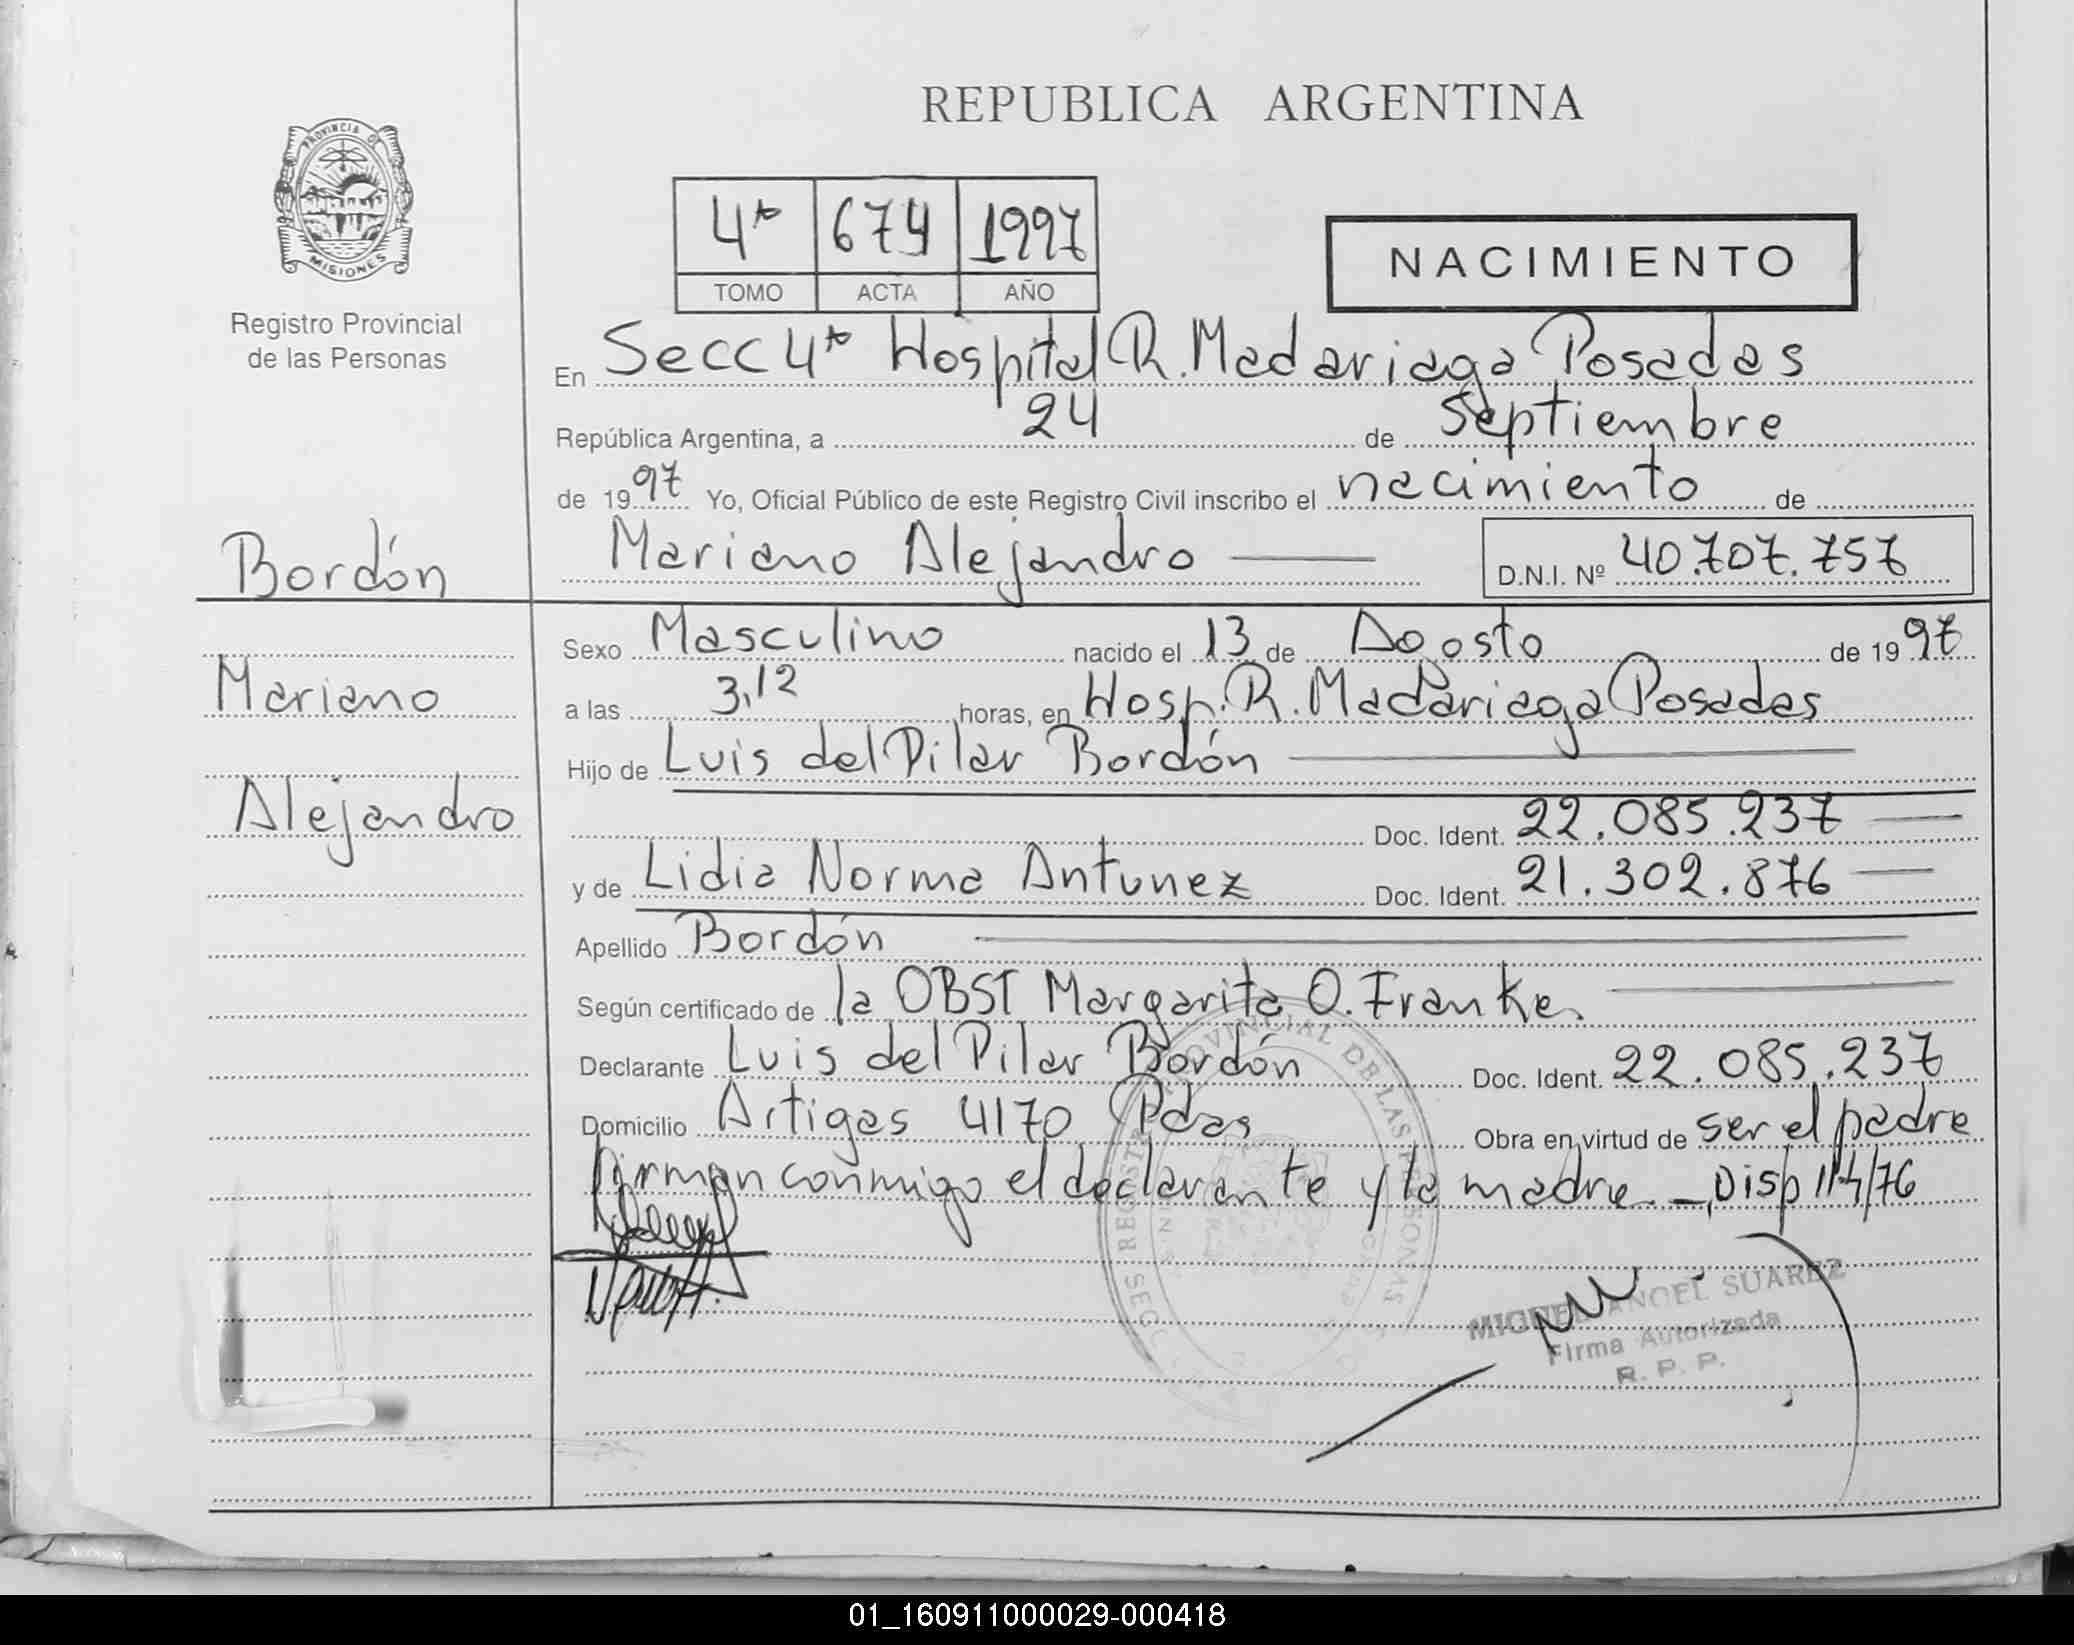 REPUBLICA ARGENTINA
PROVINCIA DE
MISIONES
Registro Provincial
de las Personas
4ta 674 1997
TOMO ACTA AÑO
NACIMIENTO
En Secc 4ta Hospital R. Madariaga Posadas
República Argentina, a 24 de Septiembre
de 1997 Yo, Oficial Público de este Registro Civil inscribo el nacimiento de
Bordón
Mariano Alejandro
D.N.I. Nº 40.707.757
Mariano
Alejandro
Sexo Masculino nacido el 13 de Agosto de 1997
a las 3,12 horas, en Hosp. R. Madariaga Posadas
Hijo de Luis del Pilar Bordón
Doc. Ident. 22.085.237
y de Lidia Norma Antunez Doc. Ident. 21.302.876
Apellido Bordón
Según certificado de la OBST Margarita O. Franke.
Declarante Luis del Pilar Bordón Doc. Ident. 22.085.237
Domicilio Artigas 4170 Pdas Obra en virtud de ser el padre
Firman conmigo el declarante y la madre. Disp 114/76
REGISTRO PROVINCIAL DE LAS PERSONAS
MIGUEL ANGEL SUAREZ
Firma Autorizada
R. P. P.
01_160911000029-000418